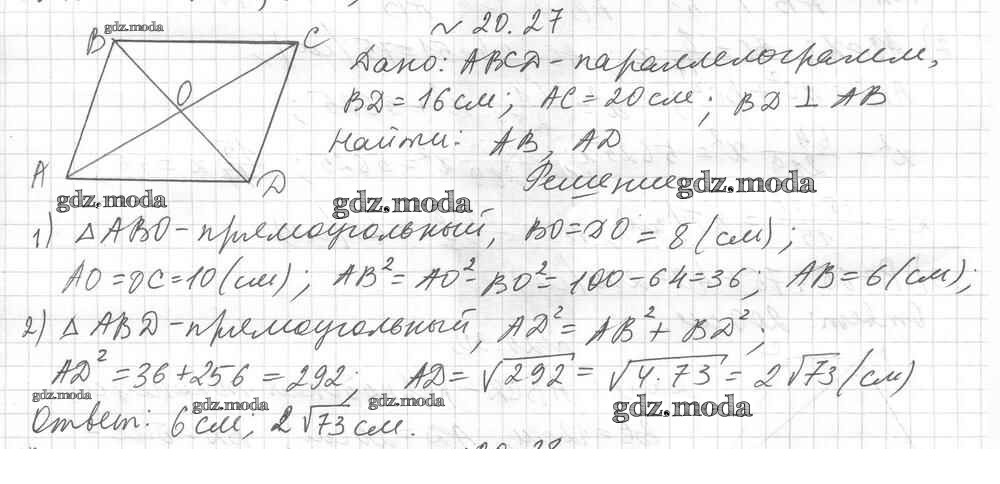 № 20.27
B gdz.moda C
Дано: ABCD - параллелограмм,
O
BD = 16 см; AC = 20 см; BD ⊥ AB
Найти: AB, AD
A D
Решение gdz.moda
gdz.moda gdz.moda
1) △ ABO - прямоугольный, BO = DO = 8 (см);
AO = OC = 10 (см); AB² = AO² - BO² = 100 - 64 = 36; AB = 6 (см);
2) △ ABD - прямоугольный, AD² = AB² + BD²;
AD² = 36 + 256 = 292; AD = √292 = √4·73 = 2√73 (см)
gdz.moda gdz.moda gdz.moda gdz.moda
Ответ: 6 см; 2√73 см.